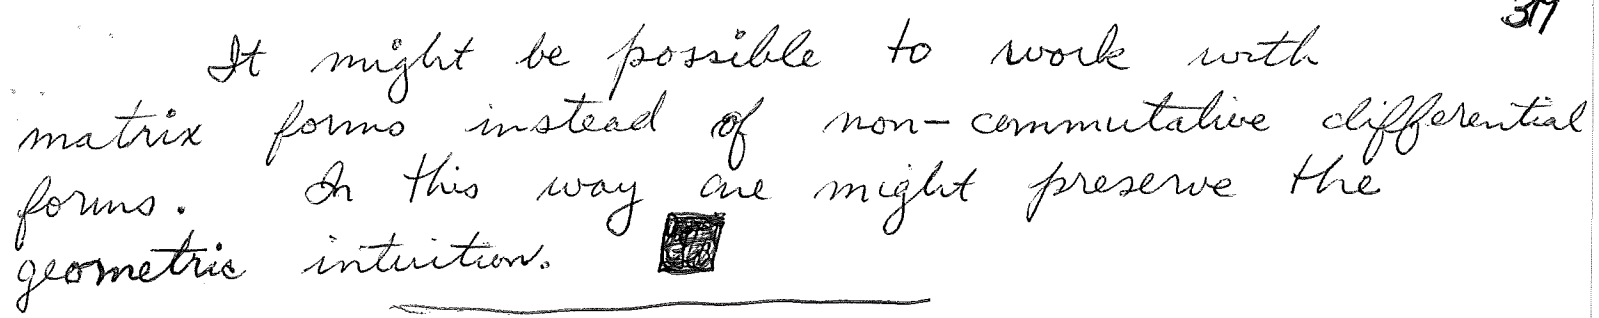 317
It might be possible to work with
matrix forms instead of non-commutative differential
forms. In this way one might preserve the
geometric intuition.